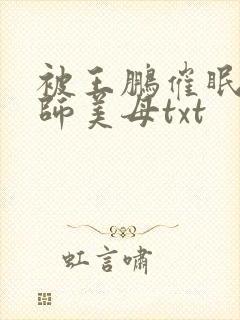 被王鹏催眠
師美母txt
虹言嘯